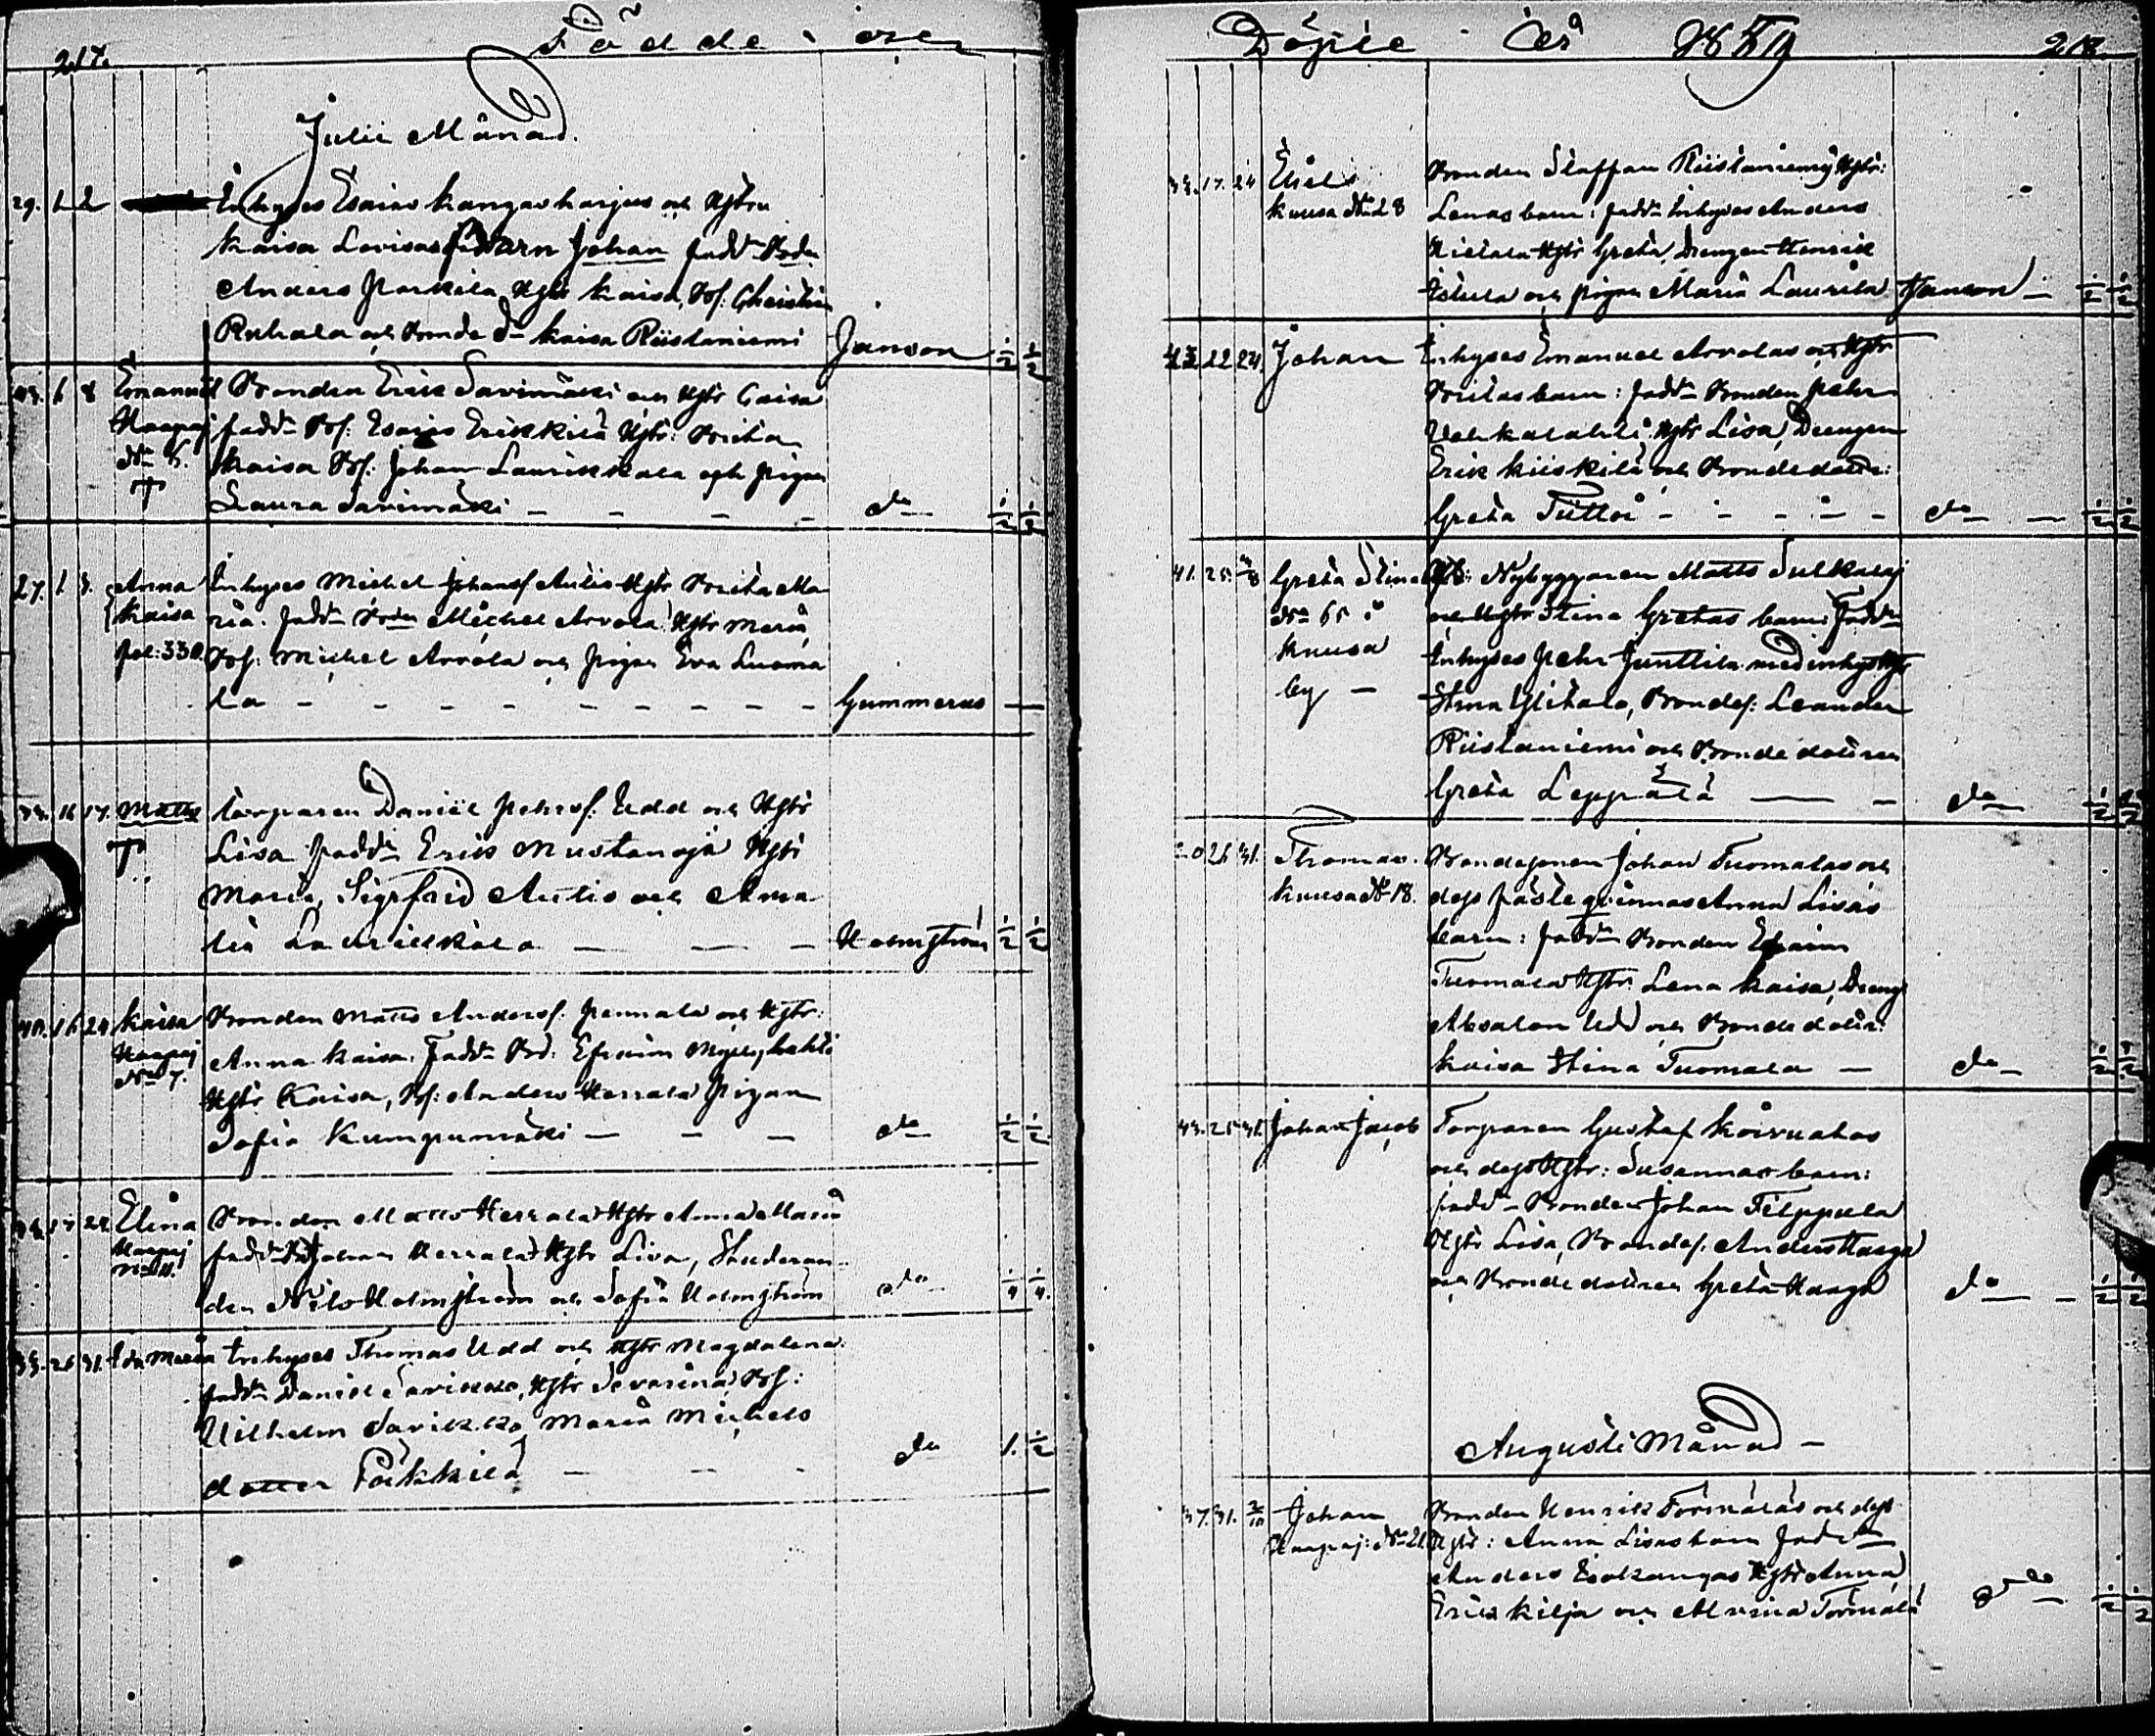 217.
Födde och
Julii Månad.
29. 1 2 Inhyses Esaias Kangasharjus och Hstru
Kaisa Lovisas barn Johan fadd. Bonden
Anders Parkila Hstr Kaisa, Bs: Christian
Ruhala och Bonde dr Kaisa Riistaniemi Janson 1/2 1/2
43. 6 8 Emanuel Bonden Erik Savimäki och Hstr Caisa
Haapaj fadd. Bs: Esaias Erikkilä Hstr: Brita
No 5. Kaisa Bs: Johan Laurikkala och pigan
Laura Savimäki - - - - do 1/2 1/2
27. 1 3. Anna Inhyses Michel Johans. Autio Hstr Brita Ma
Kaisa ria. fadd. Bonden Michel Arvola Hstr Maria
pol: 330. Bs: Michel Arvola och pigan Eva Luoma
la - - - - - - - - Gummerus —
16 17. Matts Torparen Daniel Pehrs. Udd och Hstr
Lisa fadd. Eric Mustanoja Hstr
Maria, Sigfrid Autio och Ama
lia Laurikkala — — — Holmström 1/2 1/2
40. 16 24 Kaisa Bonden Matts Anders. Pennala och Hstr:
Haapaj Anna Kaisa. Fadd. Bd: Efraim Myllylahti
No 7. Hstr Kaisa, Bs: Anders Herrala Pigan
Sofia Kumpumäki — — — do 1/2 1/2
17 24. Elina Bonden Matts Herrala Hstr Anna Maria
Haapaj fadd. Bd Johan Herrala Hstr Lisa, Studeran
No 11. den Nils Holmström och Sofia Holmström do 1/4 1/4.
33. 26 31. Ida Maria Inhyses Thomas Udd och Hstr Magdalena.
fadd. Daniel Savikko, Hstr Severina, Bs:
Wilhelm Savikko, Maria Michels
dotter Pökkilä — — - do 1. 1/2
Döpte År 1859
218.
17. 24 Elielis Bonden Staffan Riistaniemi Hstr:
Kuusa No 28 Lenas barn: fadd. Inhyses Anders
Kielala Hstr Greta, Drengen Henrik
Iskula och pigan Maria Laurila Janson — 1/2 1/2
43. 22 24. Johan Inhyses Emanuel Arvolas och Hstr
Britas barn: fadd. Bonden Pehr
Valkalahti Hstr Lisa, Drengen
Erik Kiiskilä och Bondedottr:
Greta Tiittoi - - - - do — 1/2 1/2
41. 25. 3/8 Greta Stina Nybyggaren Matts Sulkakoj
No 65 i och Hstr Stina Gretas barn: fadd.
Kuusa Inhyses Pehr Junttila med inhys Hstr
by — Stina Ylitalo, Bondes: Leander
Riistaniemi och Bonde dottren
Greta Leppälä — — do 1/2 1/2
20 26 31. Thomas. Bondesonen Johan Tuomalas och
Kuusa No 18. dess fästeqvinnas Anna Lisas
barn: fadd. Bonden Efraim
Tuomala Hstr. Lena Kaisa, Dreng
Absalon Udd och Bonde dottr:
Kaisa Stina Tuomala — do 1/2 1/2
43. 25 31. Johan Jacob Torparen Gustaf Koivuahos
och dess Hstr: Susannas barn:
fadd. Bonden Johan Filppula
Hstr Lisa, Bondes. Anders Haaga
och Bonde dottren Greta Haaga do — 1/2 1/2
Augusti Månad —
37. 31. 2/10 Johan Bonden Henrik Törmäläs och dess
Haapaj: No 21. Hstr: Anna Lisas barn fadd.
Anders Isokangas Hstr Anna,
Erik Kilja och Alvina Törmälä do 1/2 1/2